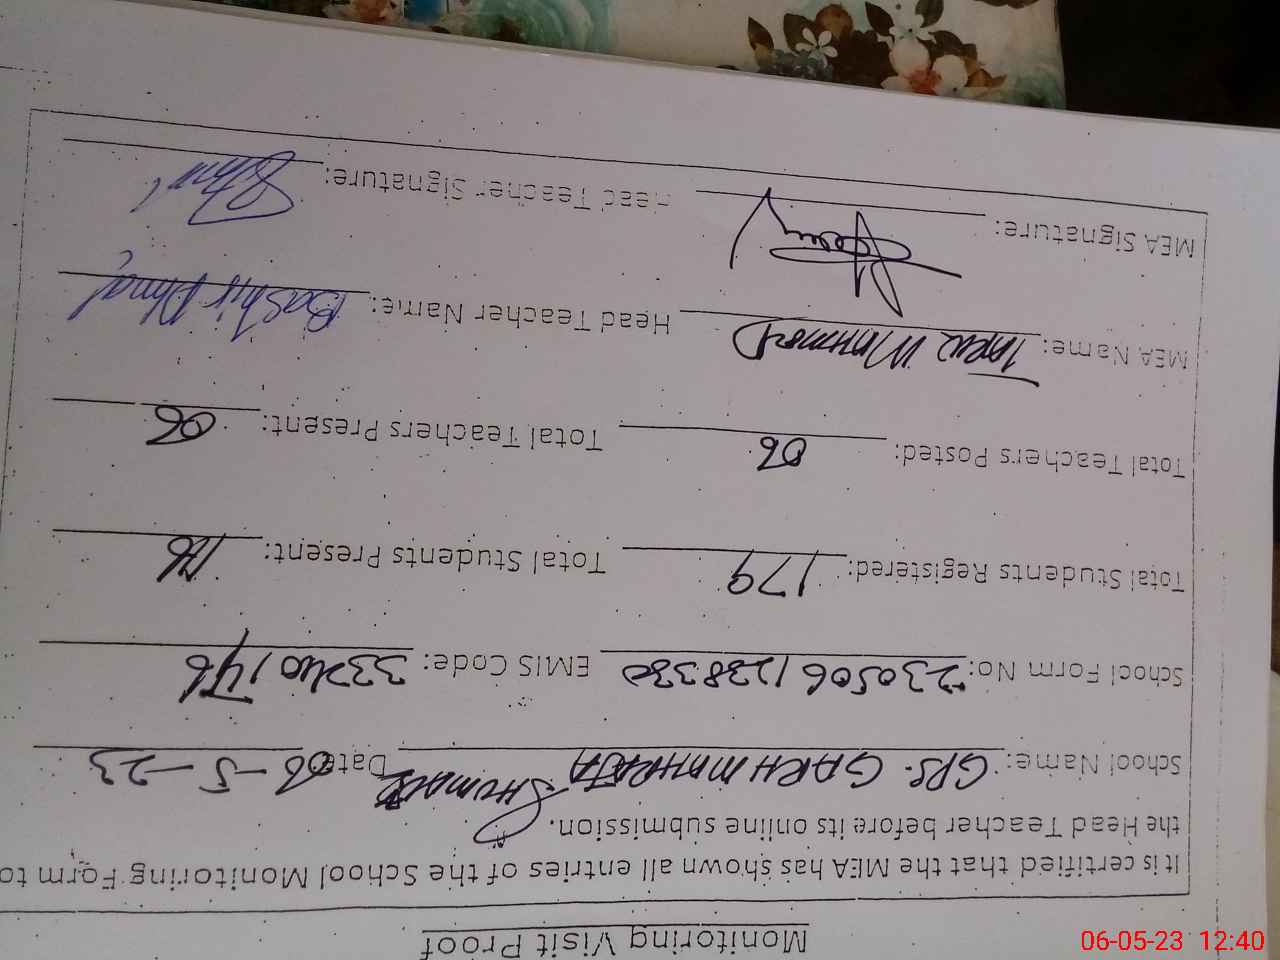 Monitoring Visit Proof
It is certified that the MEA has shown all entries of the School Monitoring Form to
the Head Teacher before its online submission.
School Name: GPS. GARH MAHARAJA SHUMALI Date 06-5-23
School Form No: 230506/238330 EMIS Code: 33240146
Total Students Registered: 179 Total Students Present:
Total Teachers Posted: 06 Total Teachers Present: 06
MEA Name: MAHMOOD Head Teacher Name: Bashir Ahmad
MEA Signature: Head Teacher Signature:
06-05-23 12:40